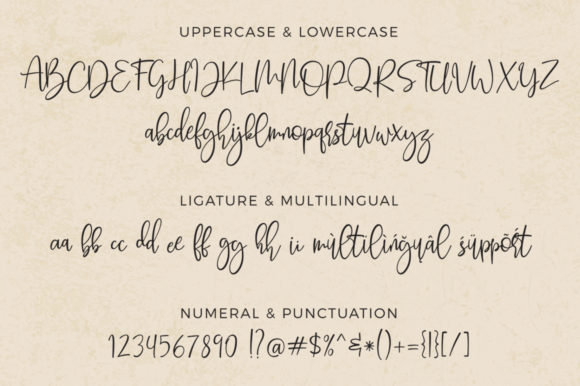 UPPERCASE & LOWERCASE
ABCDEFGHIJKLMNOPQRSTUVWXYZ
abcdefghijklmnopqrstuvwxyz
LIGATURE & MULTILINGUAL
aa bb cc dd ee ff gg hh ii mùltilìńğųâl śüppõŕt
NUMERAL & PUNCTUATION
1234567890 !?@#$%^&*()+={|}[/]